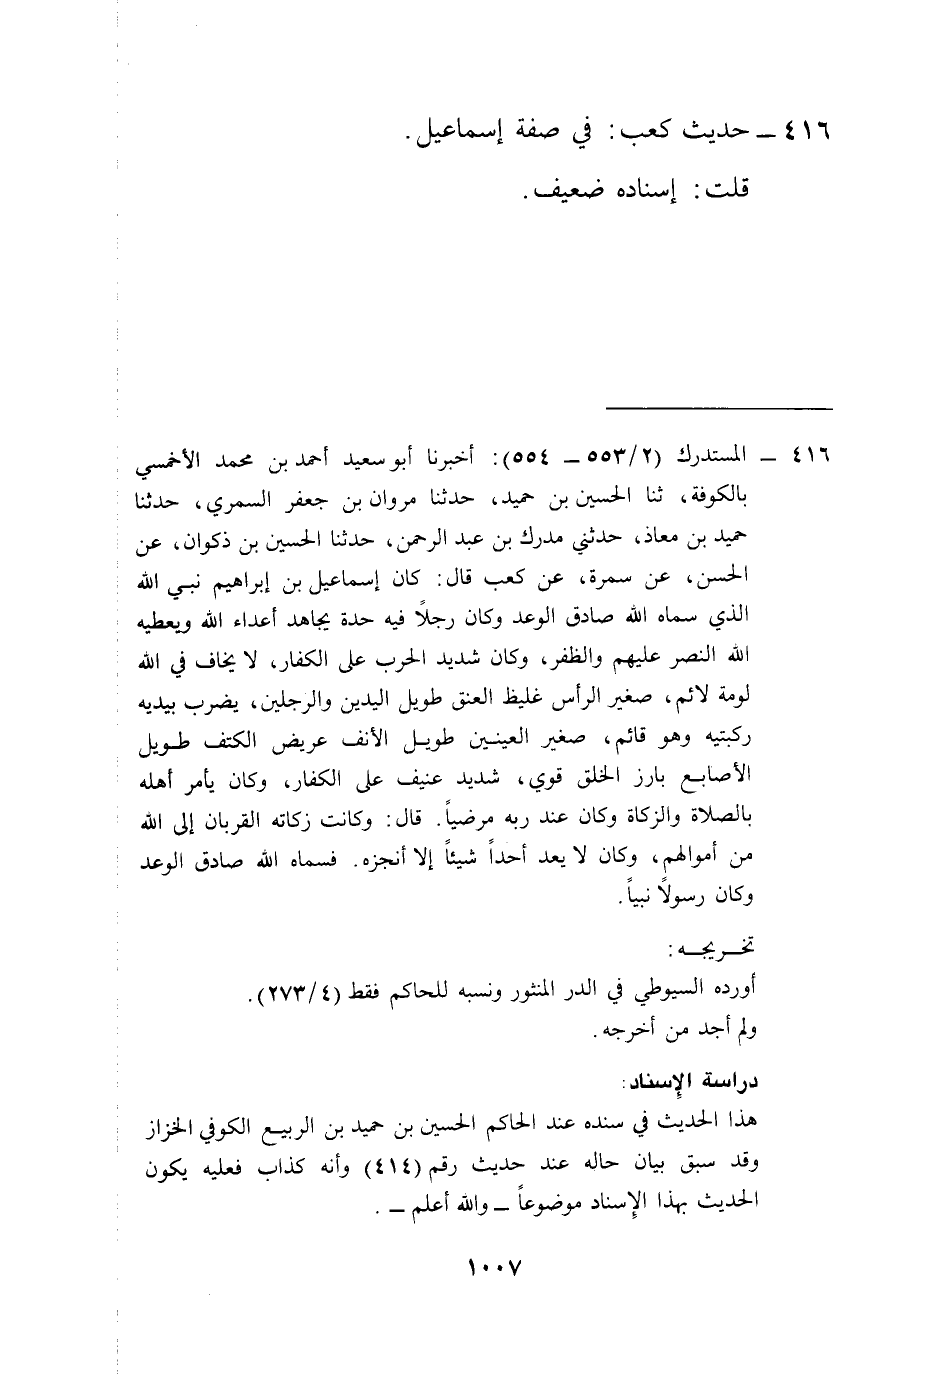 ٤١٦ ــ حديث كعب: في صفة إسماعيل.
قلت: إسناده ضعيف.
٤١٦ ــ المستدرك (٢/ ٥٥٣ ــ ٥٥٤): أخبرنا أبو سعيد أحمد بن محمد الأخمسي
بالكوفة، ثنا الحسين بن حميد، حدثنا مروان بن جعفر السمري، حدثنا
حميد بن معاذ، حدثني مدرك بن عبد الرحمن، حدثنا الحسين بن ذكوان، عن
الحسن، عن سمرة، عن كعب قال: كان إسماعيل بن إبراهيم نبي الله
الذي سماه الله صادق الوعد وكان رجلاً فيه حدة يجاهد أعداء الله ويعطيه
الله النصر عليهم والظفر، وكان شديد الحرب على الكفار، لا يخاف في الله
لومة لائم، صغير الرأس غليظ العنق طويل اليدين والرجلين، يضرب بيديه
ركبتيه وهو قائم، صغير العينين طويل الأنف عريض الكتف طويل
الأصابع بارز الخلق قوي، شديد عنيف على الكفار، وكان يأمر أهله
بالصلاة والزكاة وكان عند ربه مرضياً. قال: وكانت زكاته القربان إلى الله
من أموالهم، وكان لا يعد أحداً شيئاً إلا أنجزه. فسماه الله صادق الوعد
وكان رسولاً نبياً.
تخريجه:
أورده السيوطي في الدر المنثور ونسبه للحاكم فقط (٤/ ٢٧٣).
ولم أجد من أخرجه.
دراسة الإسناد:
هذا الحديث في سنده عند الحاكم الحسين بن حميد بن الربيع الكوفي الخزاز
وقد سبق بيان حاله عند حديث رقم (٤١٤) وأنه كذاب فعليه يكون
الحديث بهذا الإسناد موضوعاً ــ والله أعلم ــ .
١٠٠٧